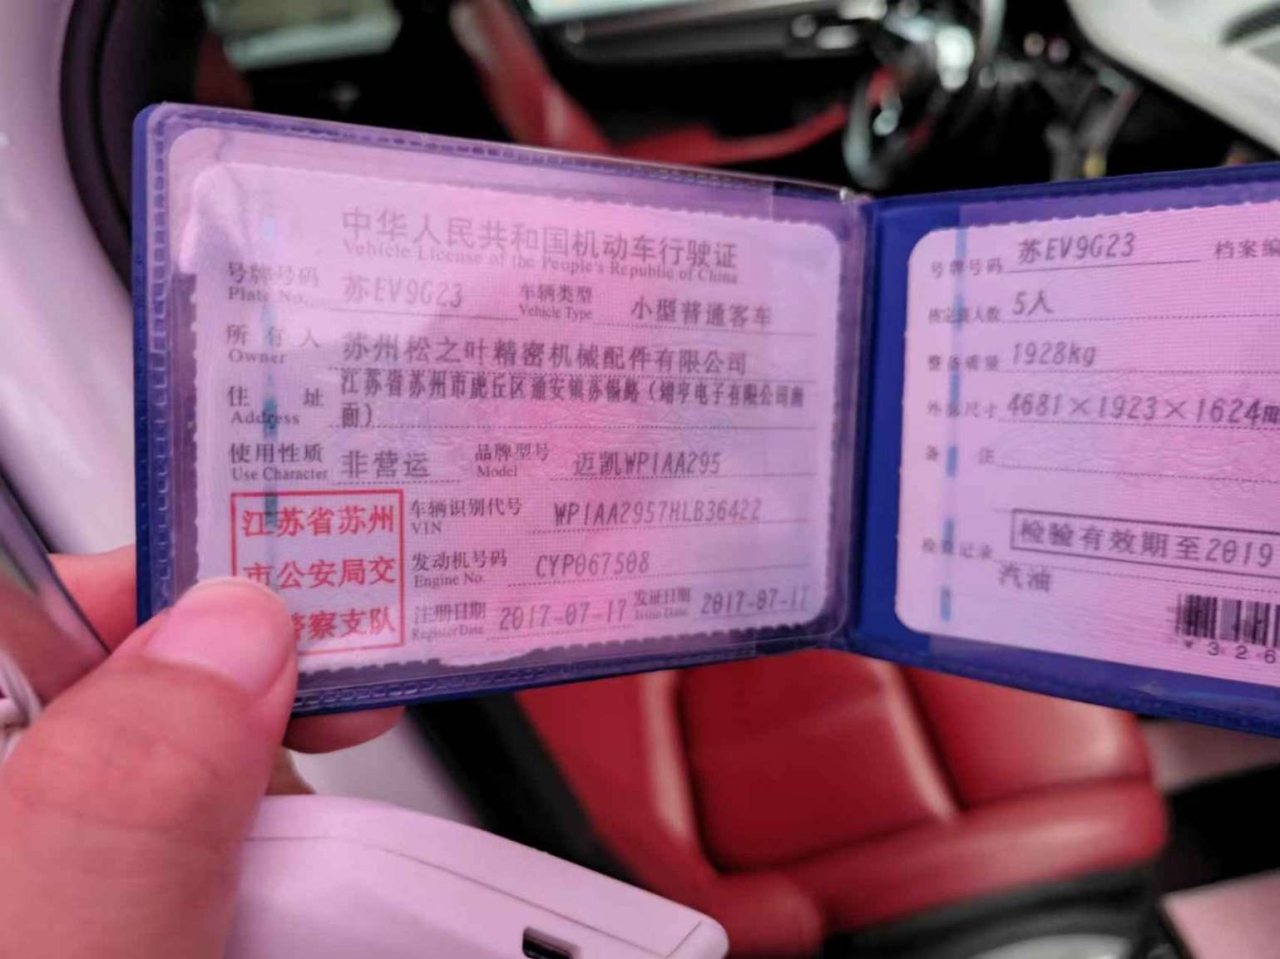 中华人民共和国机动车行驶证
Vehicle License of the People's Republic of China
号牌号码 苏EV9G23 车辆类型 小型普通客车
Plate No. Vehicle Type
所有人 苏州松之叶精密机械配件有限公司
Owner
住址 江苏省苏州市虎丘区通安镇苏锡路(翊亨电子有限公司南
Address 面)
使用性质 非营运 品牌型号 迈凯WP1AA295
Use Character Model
江苏省苏州
市公安局交
警察支队
车辆识别代号 WP1AA2957HLB36422
VIN
发动机号码 CYP067508
Engine No.
注册日期 2017-07-17 发证日期 2017-07-17
Register Date Issue Date
号牌号码 苏EV9G23 档案编
核定载人数 5人
整备质量 1928kg
外廓尺寸 4681×1923×1624mm
备注
检验记录 检验有效期至2019
汽油
326